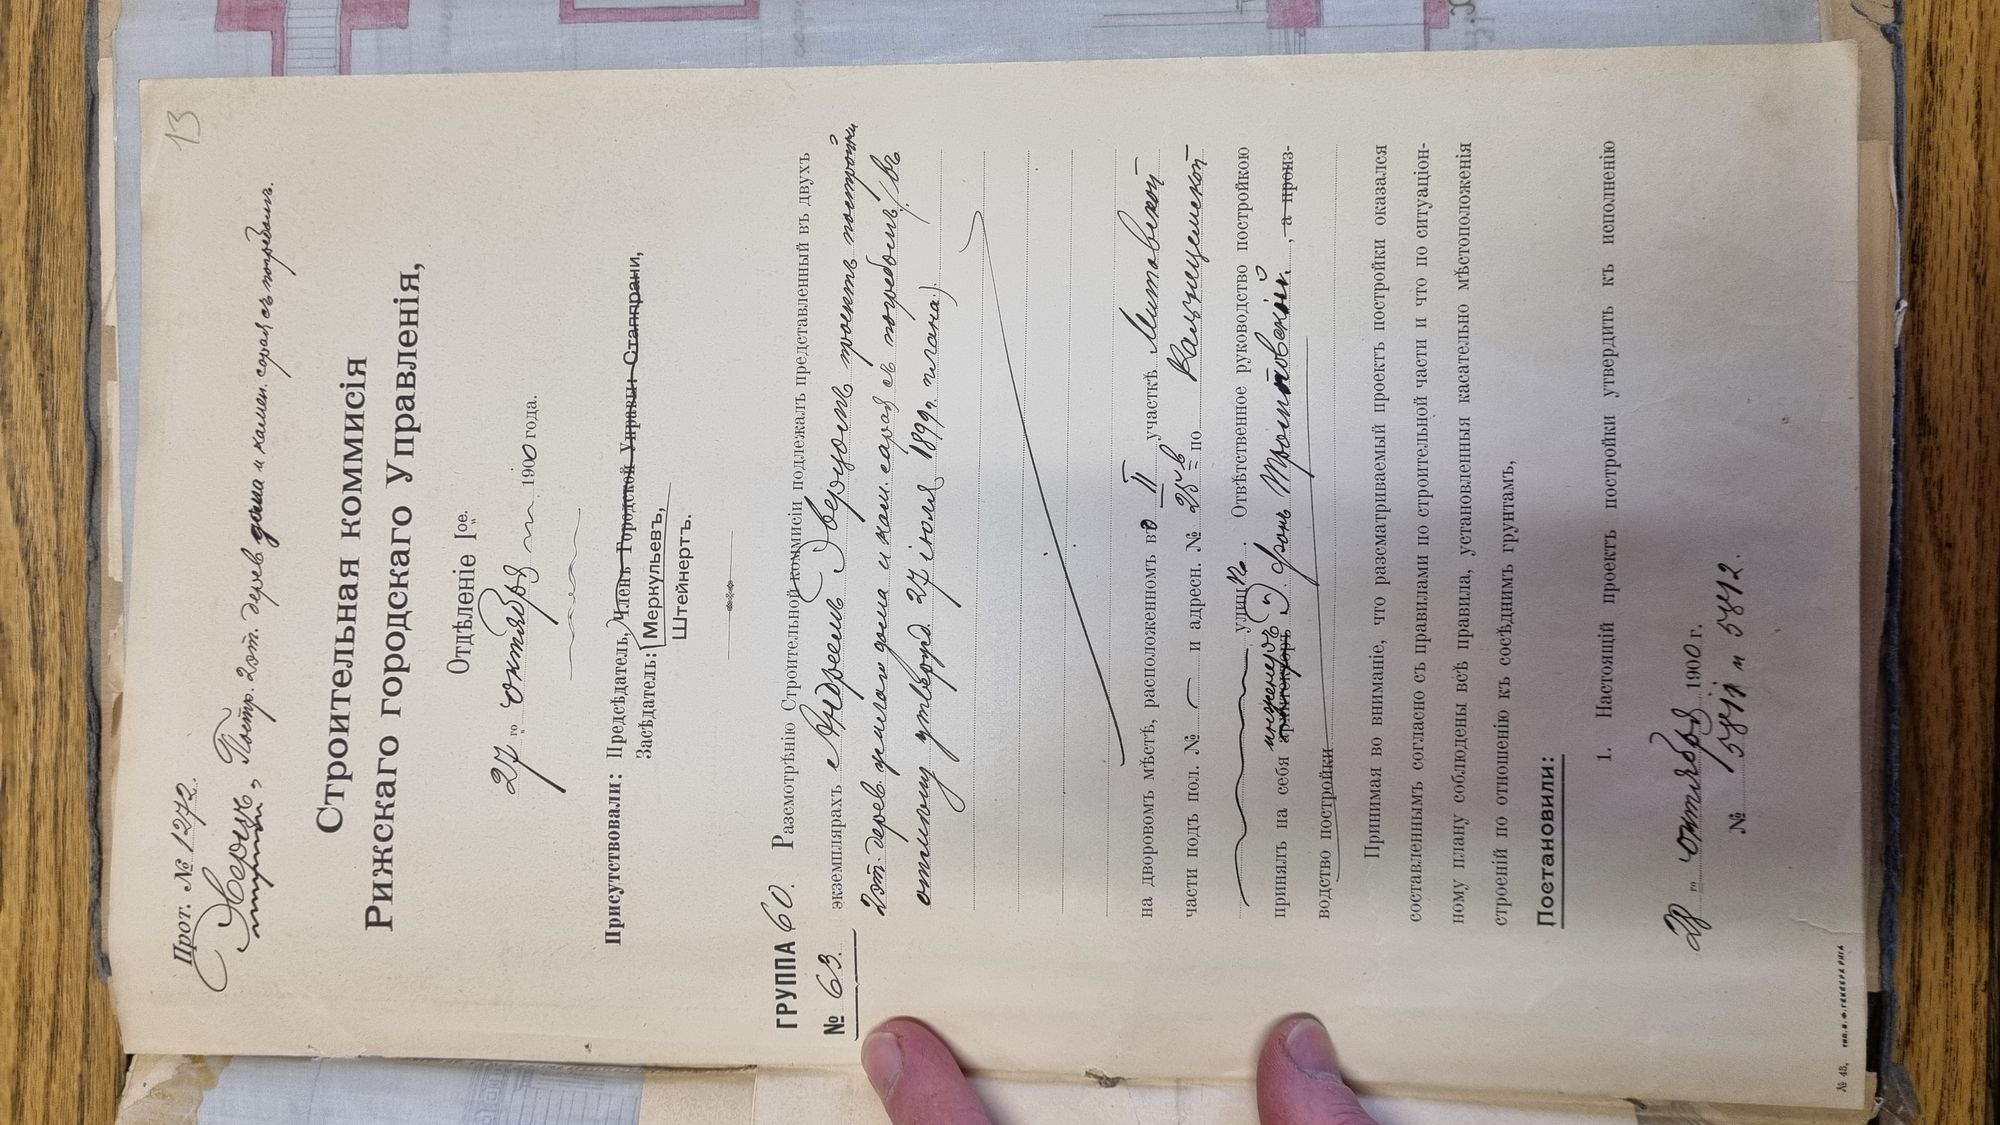 13
Прот. № 1272.
Эверцъ, Постр. 2 эт. дерев. дома и камен. сарая съ погребомъ.
Строительная коммисія
Рижскаго городскаго Управленія,
Отдѣленіе ое.
27 го октября 1900 года.
Присутствовали: Предсѣдатель, Членъ Городской Управы: Стаппрани,
Засѣдатель: Меркульевъ,
Штейнертъ.
ГРУППА 60.
№ 63.
Разсмотрѣнію Строительной коммисіи подлежалъ представленный въ двухъ
экземплярахъ Андреемъ Эверцомъ проектъ постройки
2 эт. дерев. жилого дома и кам. сарая съ погребомъ (въ
отмѣну утвержд. 27 іюля 1899 г. плана.)
на дворовомъ мѣстѣ, расположенномъ во II участкѣ Митавской
части подъ пол. № — и адресн. № 25в по Кальнецемской
улицѣ. Отвѣтственное руководство постройкою
принялъ на себя архитекторъ инженеръ Э. фонъ Тромповскій, а произ-
водство постройки
Принимая во вниманіе, что разсматриваемый проектъ постройки оказался
составленнымъ согласно съ правилами по строительной части и что по ситуаціон-
ному плану соблюдены всѣ правила, установленныя касательно мѣстоположенія
строеній по отношенію къ сосѣднимъ грунтамъ,
Постановили:
1. Настоящій проектъ постройки утвердить къ исполненію
28 го октября 1900 г.
№
№ 48, тип. В. Ф. Геккера Рига